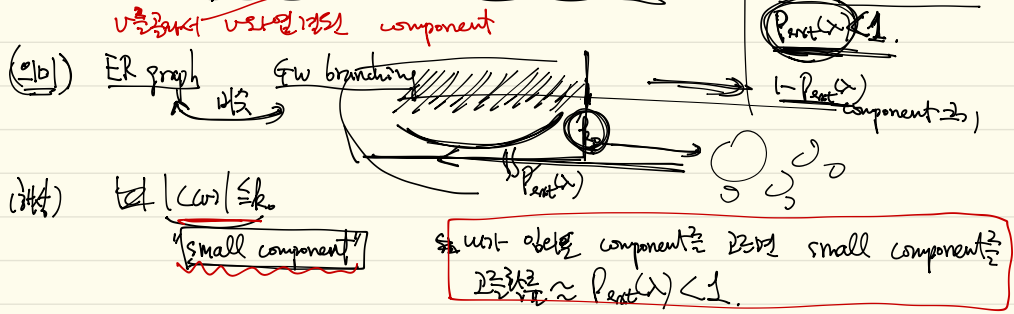 v를골라서 v와연결된 component
P_ext(λ)<1.
(의미) ER graph GW branching
비슷
1-P_ext(λ)
component크,
k₀
P_ext(λ)
(해석) 만 |C(v)| ≤ k₀
"small component"
v가 임의로 component를 고르면 small component를
고를확률 ~ P_ext(λ)<1.